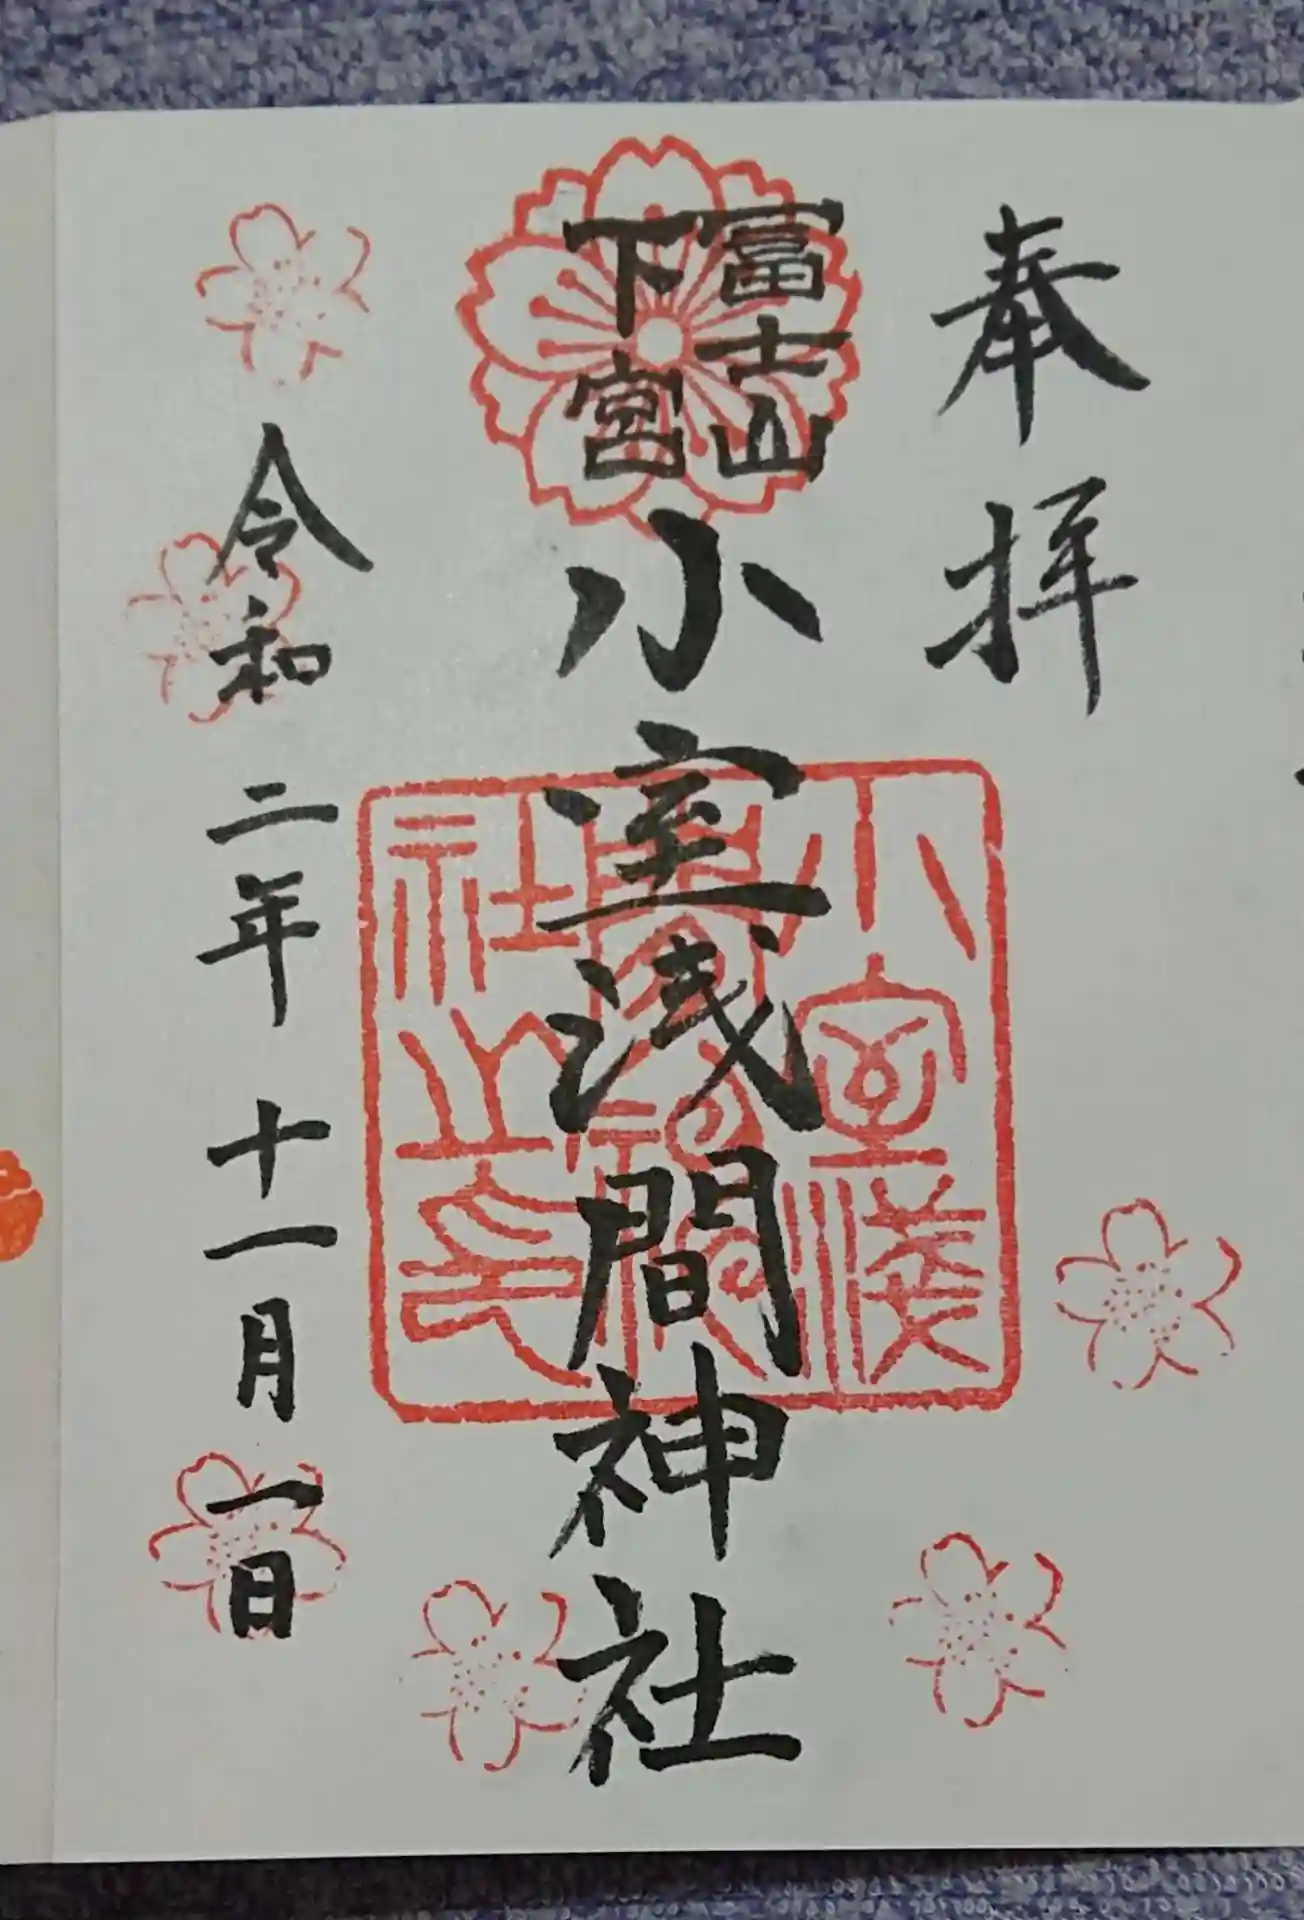 奉拝
富士山
下宮
小室浅間神社
令和二年十一月一日
小室浅間神社之印